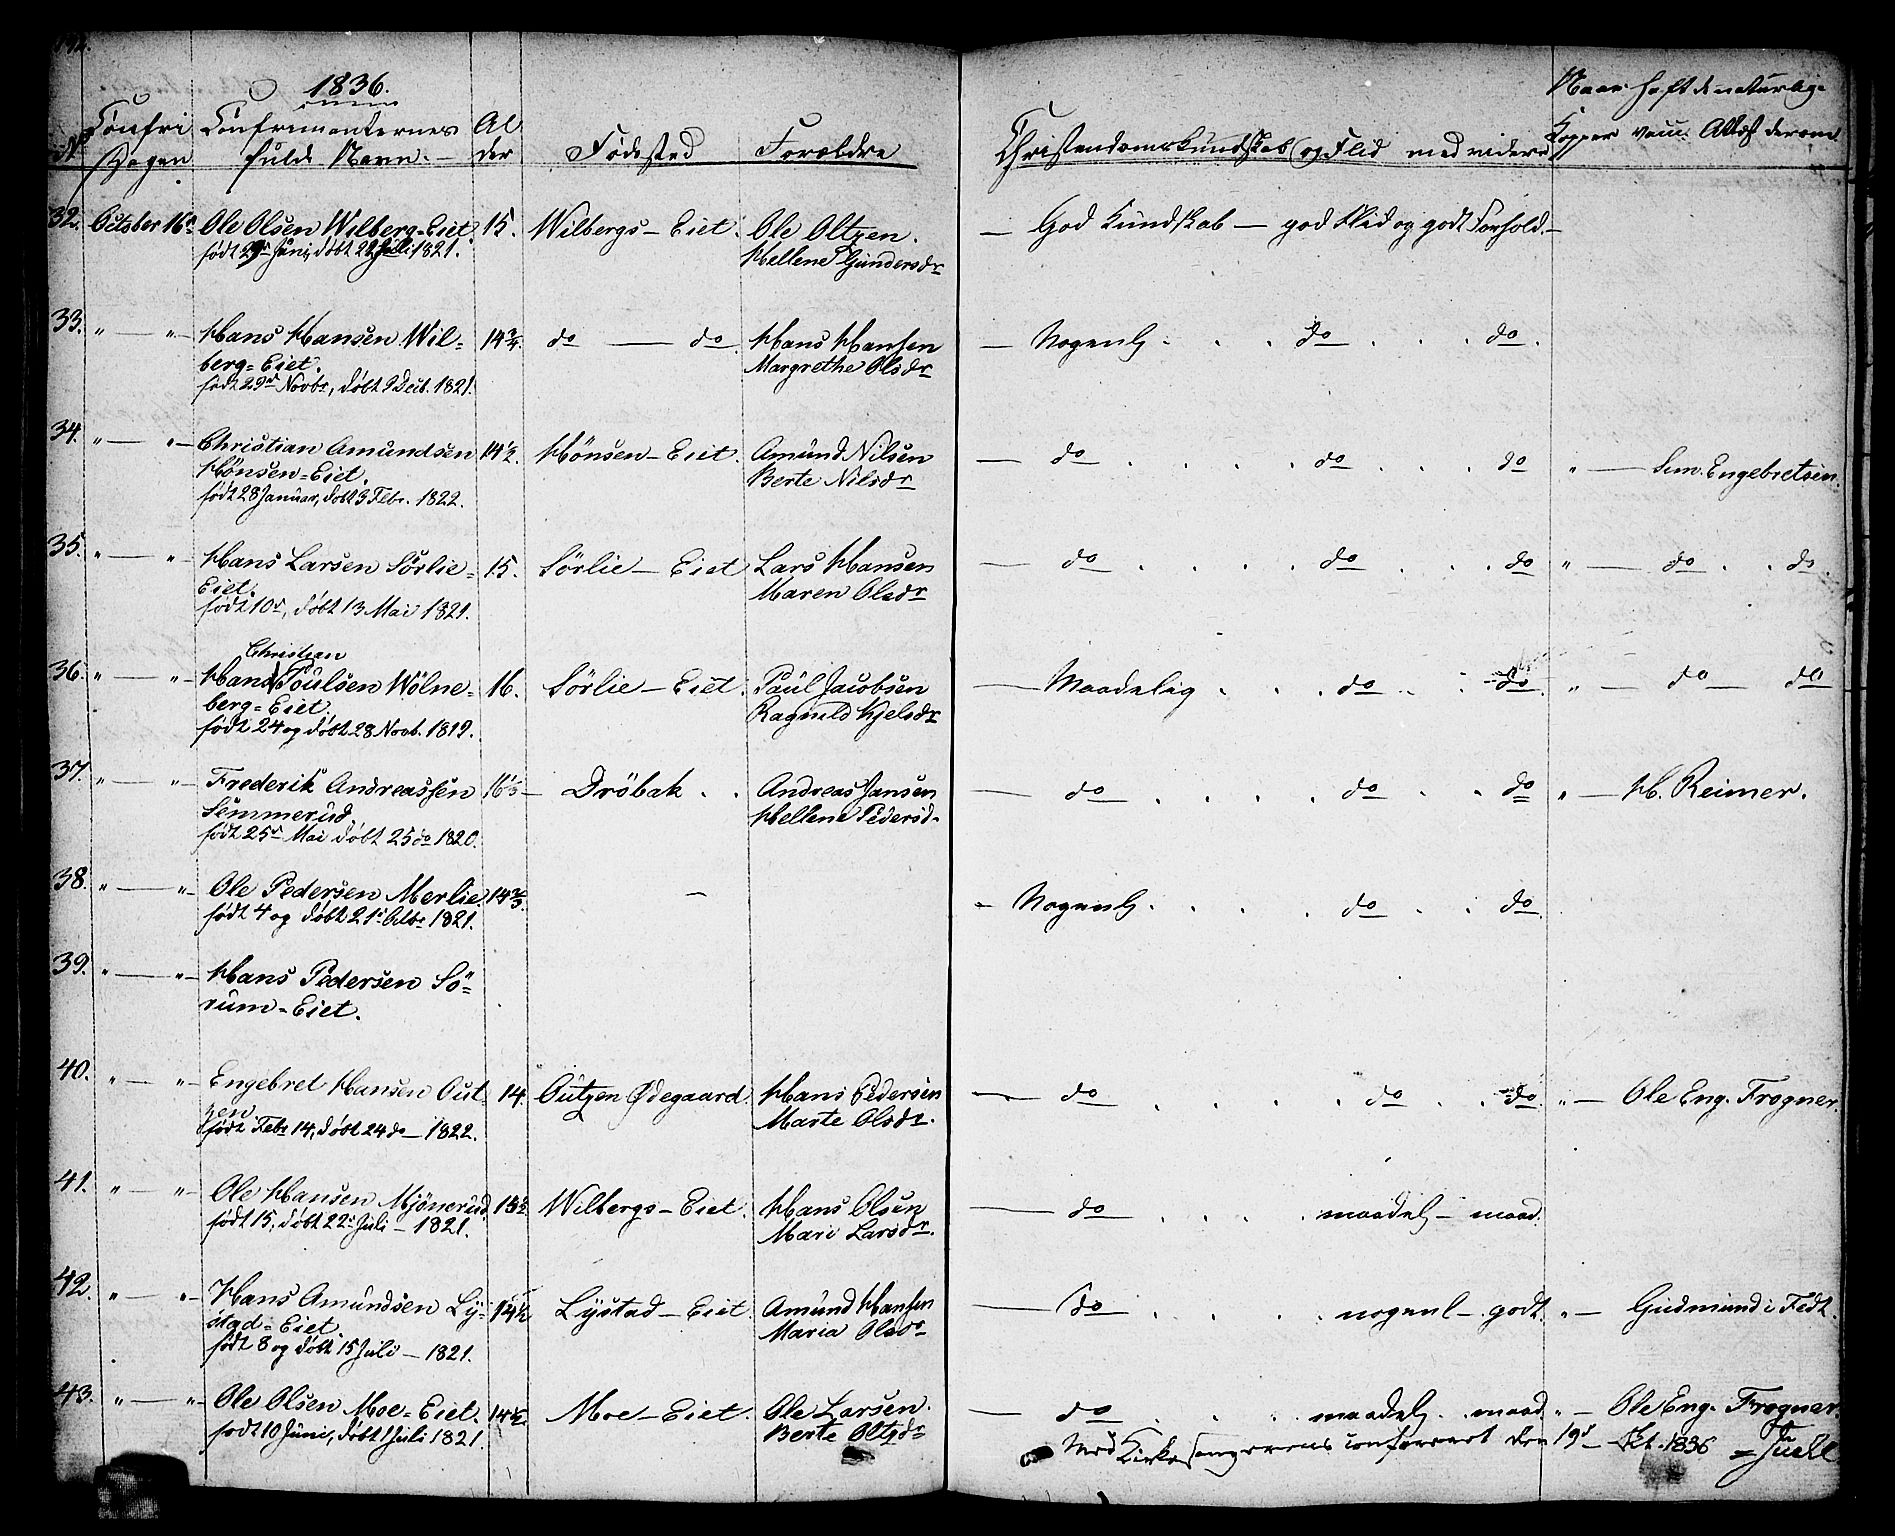 1836.
Confri Confirmanternes Al Naar haft de naturlige
Dagen fulde Navn. — der Fødested Forældre Christendomskundskab og Flid med videre Kopper Attest derom
32. October 16de Ole Olsen Wilberg=Eiet. 15. Wilbergs — Eiet. Ole Oltzen. — God Kundskab — god Flid og godt Forhold. —
født 29de Juni, døbt 22 Juli 1821. Hellene Gundersdr
33. " — " — Hans Hansen Wil= 14¾. do — do Hans Hansen — Nogenl. . . . do . . . do.
berg=Eiet. Margrethe Olsdr
født 29de Novbr, døbt 9 Decb. 1821.
34. " — " — Christian Amundsen 14½. Hönsen — Eiet. Amund Nilsen — do . . . . do . . . do " — Sem. Engebretsen.
Hönsen=Eiet. Berte Nilsdr
født 28 Januar, døbt 3 Febr. 1822.
35. " — " — Hans Larsen Sörlie= 15. Sörlie — Eiet Lars Hansen — do . . . . do . . . do " — do . . do.
Eiet. Maren Olsdr
født 10de, døbt 13 Mai 1821.
Christian
36. " — " — Hans Poulsen Wölne= 16. Sörlie — Eiet. Paul Jacobsen — Maadelig . . . do . . do. " — do — do
berg=Eiet. Ragnild Kjelsdr
født 24 og døbt 28 Novb. 1819.
37. " — " — Frederik Andreassen Dröbak . . Andreas Jansen — do . . . . do . . do " — H. Reimer.
Semmerud. Hellene Pedersd.
født 25de Mai døbt 25 do 1820.
38. " — " — Ole Pedersen Merlie. — — Nogenl. . . . . do . . do.
født 4 og døbt 21de Octbr 1821.
39. " — " — Hans Pedersen Sö=
rum=Eiet.
40. " — " — Engebret Hansen Out= 14. Outzen Ødegaard. Hans Pedersen — do . . . . do . . do. " — Ole Eng. Frogner.
zen. Marte Olsdr.
født Febr 14, døbt 24 do — 1822.
41. " — " — Ole Hansen Mjönerud. Wilbergs — Eiet. Hans Olsen — do . . . . maadel — maad.
født 15, døbt 22de Juli — 1821. Mari Larsdr.
42. " — " — Hans Amundsen Ly= 14½ Lystad — Eiet. Amund Hansen — do . . . . nogenl — godt. " — Gudmund i Fedt.
stad=Eiet. Maria Olsdr
født 8 og døbt 15 Juli — 1821.
43. " — " — Ole Olsen Moe=Eiet. 14½. Moe — Eiet. Ole Larsen. — do . . . maadel . . maad. " — Ole Eng. Frogner.
født 10 Juni, døbt 1 Juli 1821. Berte Oltzdr
Med Kirkesangerens confereret den 19de Oct. 1836 = Juell